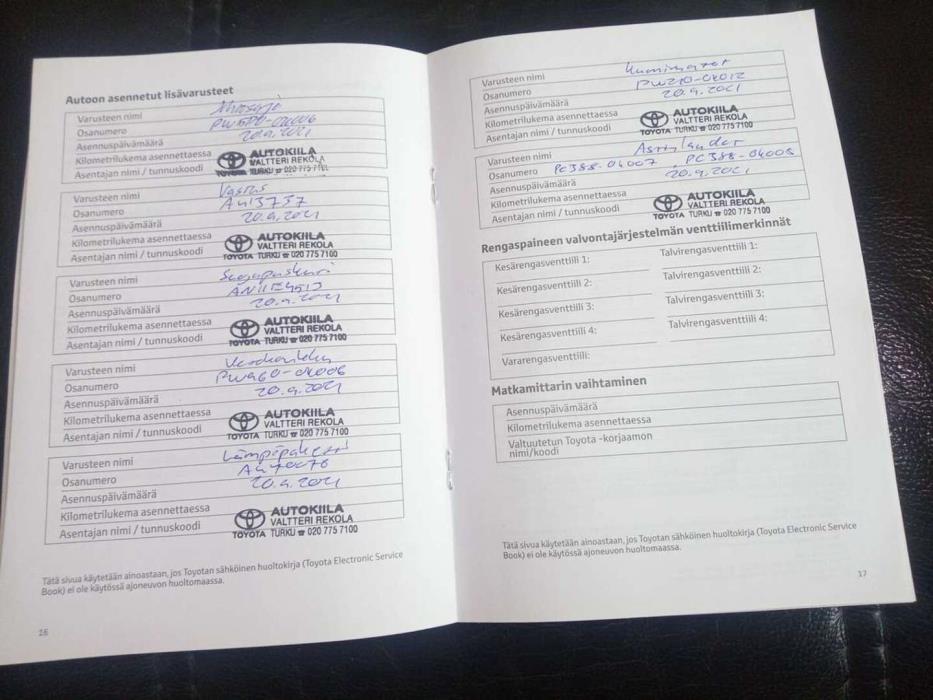 Autoon asennetut lisävarusteet
Varusteen nimi
Osanumero
Asennuspäivämäärä 20.9.2021
Kilometrilukema asennettaessa
Asentajan nimi / tunnuskoodi
AUTOKIILA
VALTTERI REKOLA
TOYOTA TURKU ☎ 020 775 7100
Varusteen nimi Vastus
Osanumero AN13757
Asennuspäivämäärä 20.9.2021
Kilometrilukema asennettaessa
Asentajan nimi / tunnuskoodi
AUTOKIILA
VALTTERI REKOLA
TOYOTA TURKU ☎ 020 775 7100
Varusteen nimi Suojapuskuri
Osanumero
Asennuspäivämäärä 20.9.2021
Kilometrilukema asennettaessa
Asentajan nimi / tunnuskoodi
AUTOKIILA
VALTTERI REKOLA
TOYOTA TURKU ☎ 020 775 7100
Varusteen nimi
Osanumero
Asennuspäivämäärä 20.9.2021
Kilometrilukema asennettaessa
Asentajan nimi / tunnuskoodi
AUTOKIILA
VALTTERI REKOLA
TOYOTA TURKU ☎ 020 775 7100
Varusteen nimi Lämpöpaketti
Osanumero
Asennuspäivämäärä 20.9.2021
Kilometrilukema asennettaessa
Asentajan nimi / tunnuskoodi
AUTOKIILA
VALTTERI REKOLA
TOYOTA TURKU ☎ 020 775 7100
Tätä sivua käytetään ainoastaan, jos Toyotan sähköinen huoltokirja (Toyota Electronic Service
Book) ei ole käytössä ajoneuvon huoltomaassa.
16
Varusteen nimi Kumimatot
Osanumero PW210-0K012
Asennuspäivämäärä 20.9.2021
Kilometrilukema asennettaessa
Asentajan nimi / tunnuskoodi
AUTOKIILA
VALTTERI REKOLA
TOYOTA TURKU ☎ 020 775 7100
Varusteen nimi Astinlaudat
Osanumero PC388-0K007, PC388-0K008
Asennuspäivämäärä 20.9.2021
Kilometrilukema asennettaessa
Asentajan nimi / tunnuskoodi
AUTOKIILA
VALTTERI REKOLA
TOYOTA TURKU ☎ 020 775 7100
Rengaspaineen valvontajärjestelmän venttiilimerkinnät
Kesärengasventtiili 1: Talvirengasventtiili 1:
Kesärengasventtiili 2: Talvirengasventtiili 2:
Kesärengasventtiili 3: Talvirengasventtiili 3:
Kesärengasventtiili 4: Talvirengasventtiili 4:
Vararengasventtiili:
Matkamittarin vaihtaminen
Asennuspäivämäärä
Kilometrilukema asennettaessa
Valtuutetun Toyota -korjaamon
nimi/koodi
Tätä sivua käytetään ainoastaan, jos Toyotan sähköinen huoltokirja (Toyota Electronic Service
Book) ei ole käytössä ajoneuvon huoltomaassa.
17